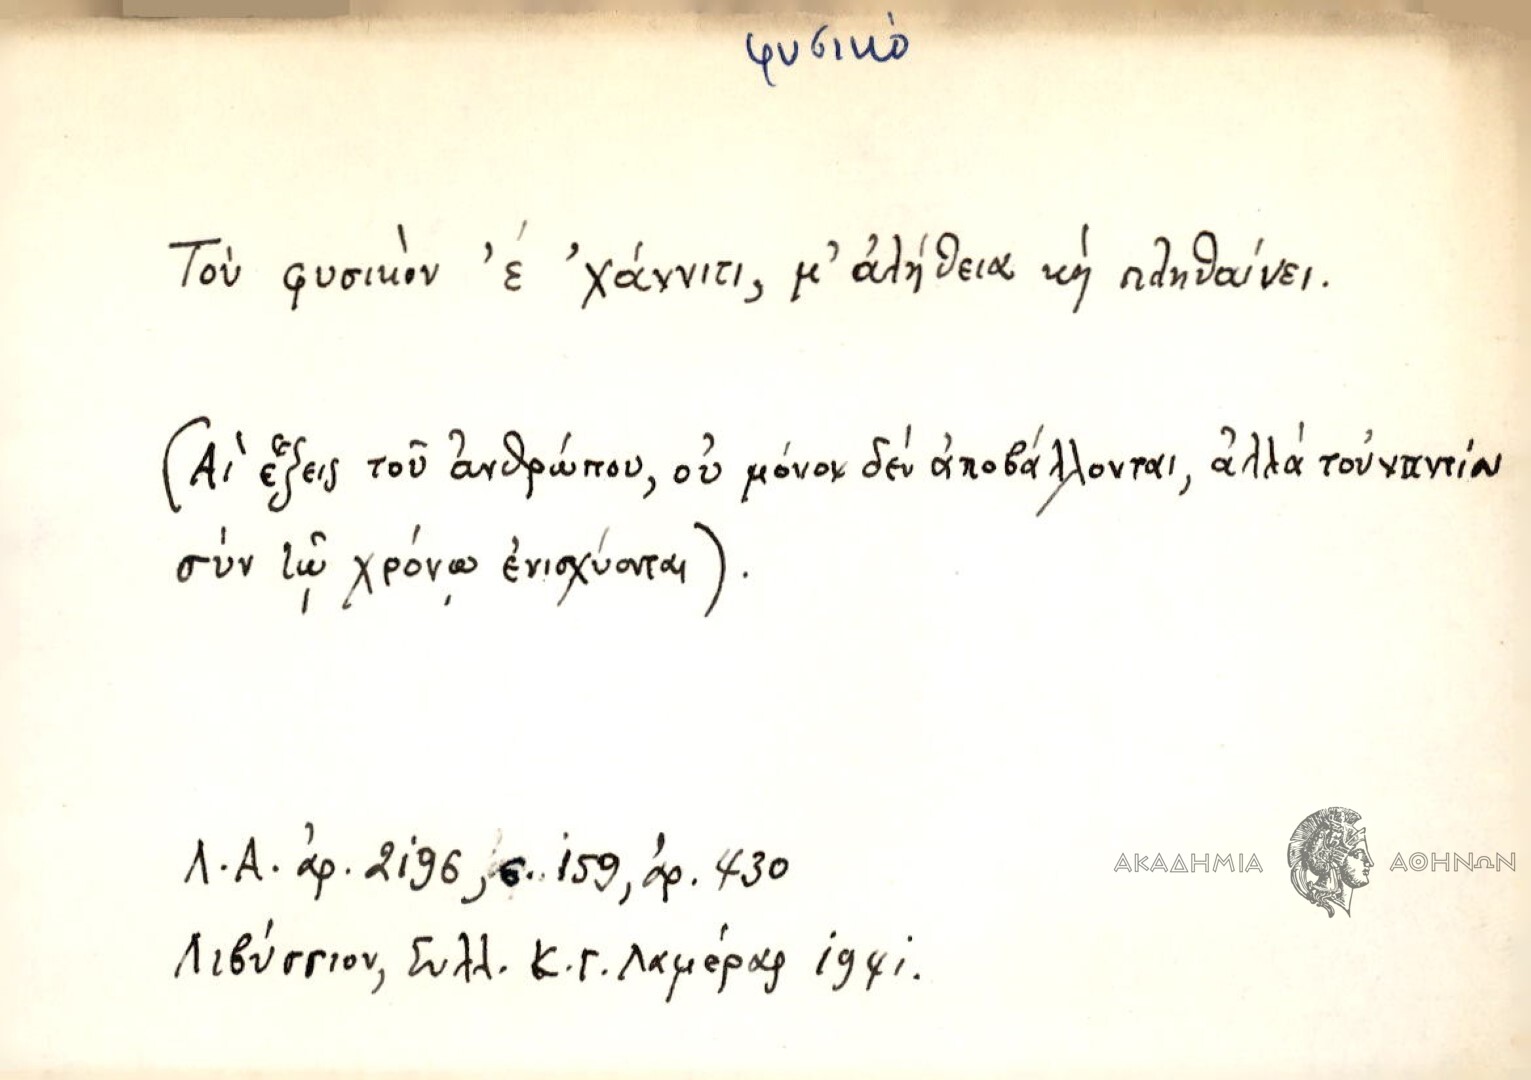 φυσικὸ
Τοὺ φυσικὸν 'έ 'χάννιτι, μ' ἀλήθεια κὴ πληθαίνει.
(Αἱ ἕξεις τοῦ ἀνθρώπου, οὐ μόνον δέν ἀποβάλλονται, ἀλλά τοὐναντίον
σύν τῷ χρόνῳ ἐνισχύονται).
Λ.Α. ἀρ. 2196, σ. 159, ἀρ. 430
Λιβύσσιον, Συλλ. Κ.Γ. Λαμέρας 1941.
ΑΚΑΔΗΜΙΑ ΑΘΗΝΩΝ